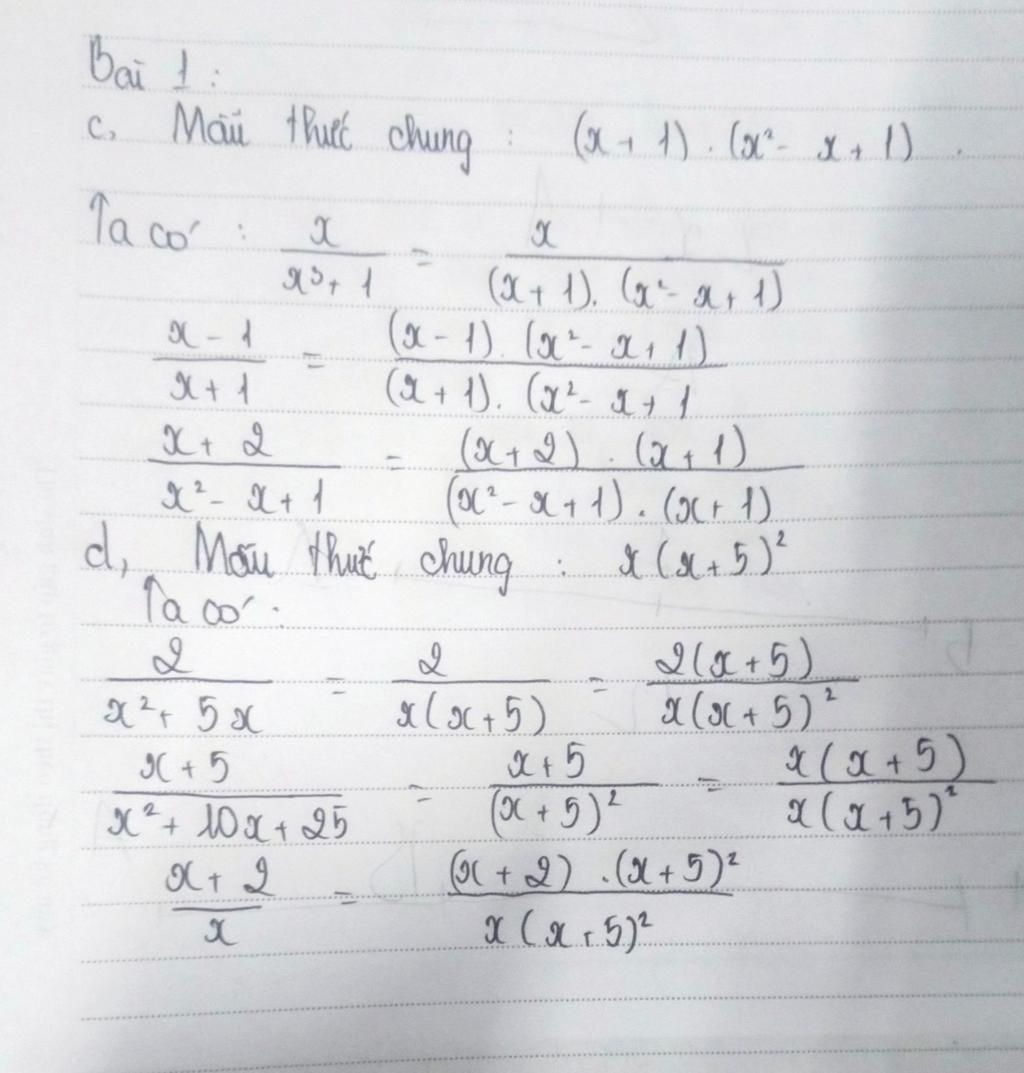 Bài 1 :
c, Mẫu thức chung : (x + 1) . (x² - x + 1) .
Ta có : x / (x³ + 1) = x / ((x + 1). (x² - x + 1))
(x - 1) / (x + 1) = (x - 1). (x² - x + 1) / (x + 1). (x² - x + 1
(x + 2) / (x² - x + 1) = (x + 2) . (x + 1) / (x² - x + 1) . (x + 1)
d, Mẫu thức chung : x (x + 5)²
Ta có :
2 / (x² + 5x) = 2 / x(x + 5) = 2(x + 5) / x(x + 5)²
(x + 5) / (x² + 10x + 25) = (x + 5) / (x + 5)² = x(x + 5) / x(x + 5)²
(x + 2) / x = (x + 2) . (x + 5)² / x(x + 5)²